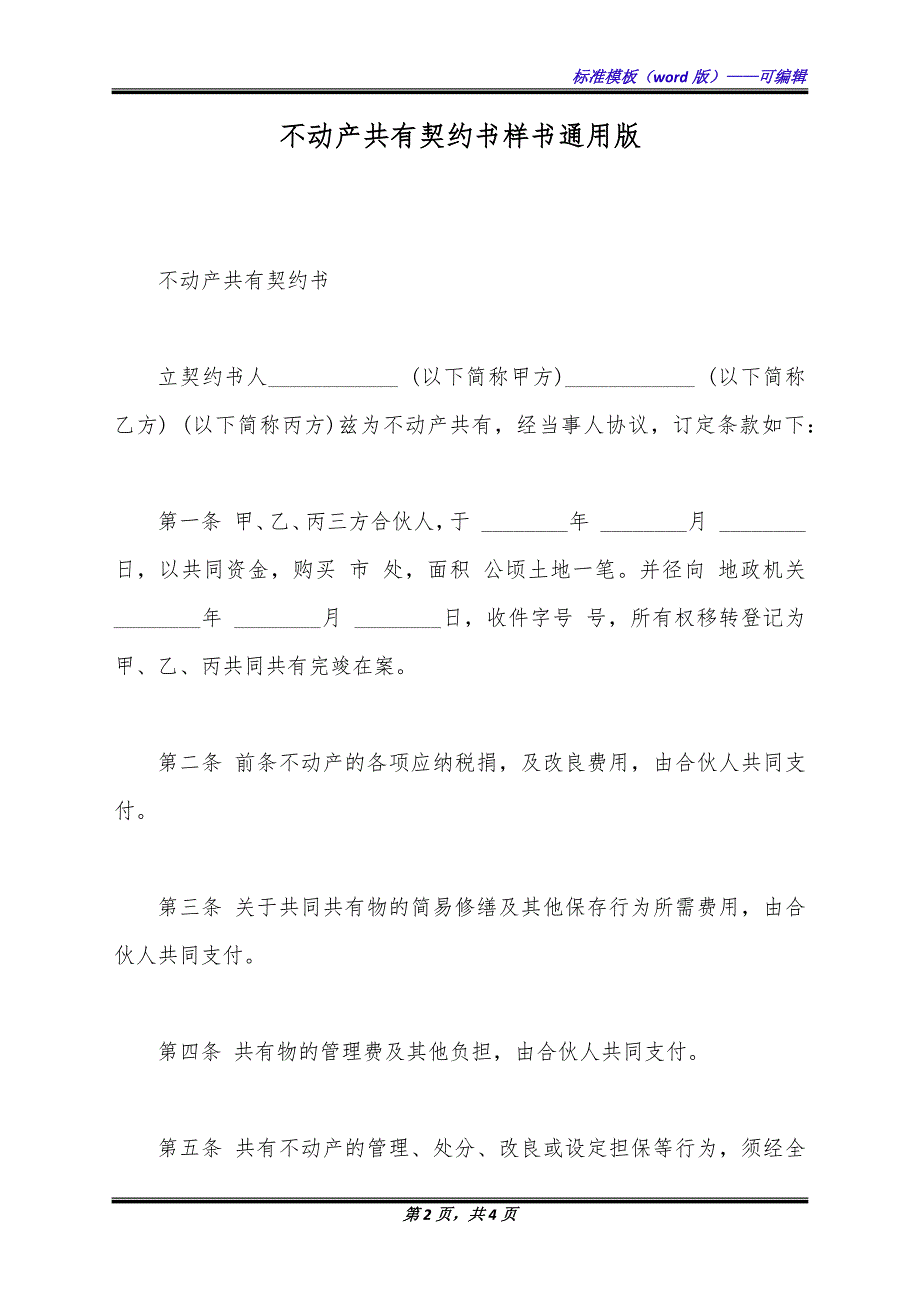 标准模板（word 版）——可编辑
不动产共有契约书样书通用版
不动产共有契约书
立契约书人____________ (以下简称甲方)____________ (以下简称
乙方) (以下简称丙方)兹为不动产共有，经当事人协议，订定条款如下:
第一条 甲、乙、丙三方合伙人，于 ________年 ________月 ________
日，以共同资金，购买 市 处，面积 公顷土地一笔。并径向 地政机关
________年 ________月 ________日，收件字号 号，所有权移转登记为
甲、乙、丙共同共有完竣在案。
第二条 前条不动产的各项应纳税捐，及改良费用，由合伙人共同支
付。
第三条 关于共同共有物的简易修缮及其他保存行为所需费用，由合
伙人共同支付。
第四条 共有物的管理费及其他负担，由合伙人共同支付。
第五条 共有不动产的管理、处分、改良或设定担保等行为，须经全
第 2 页，共 4 页